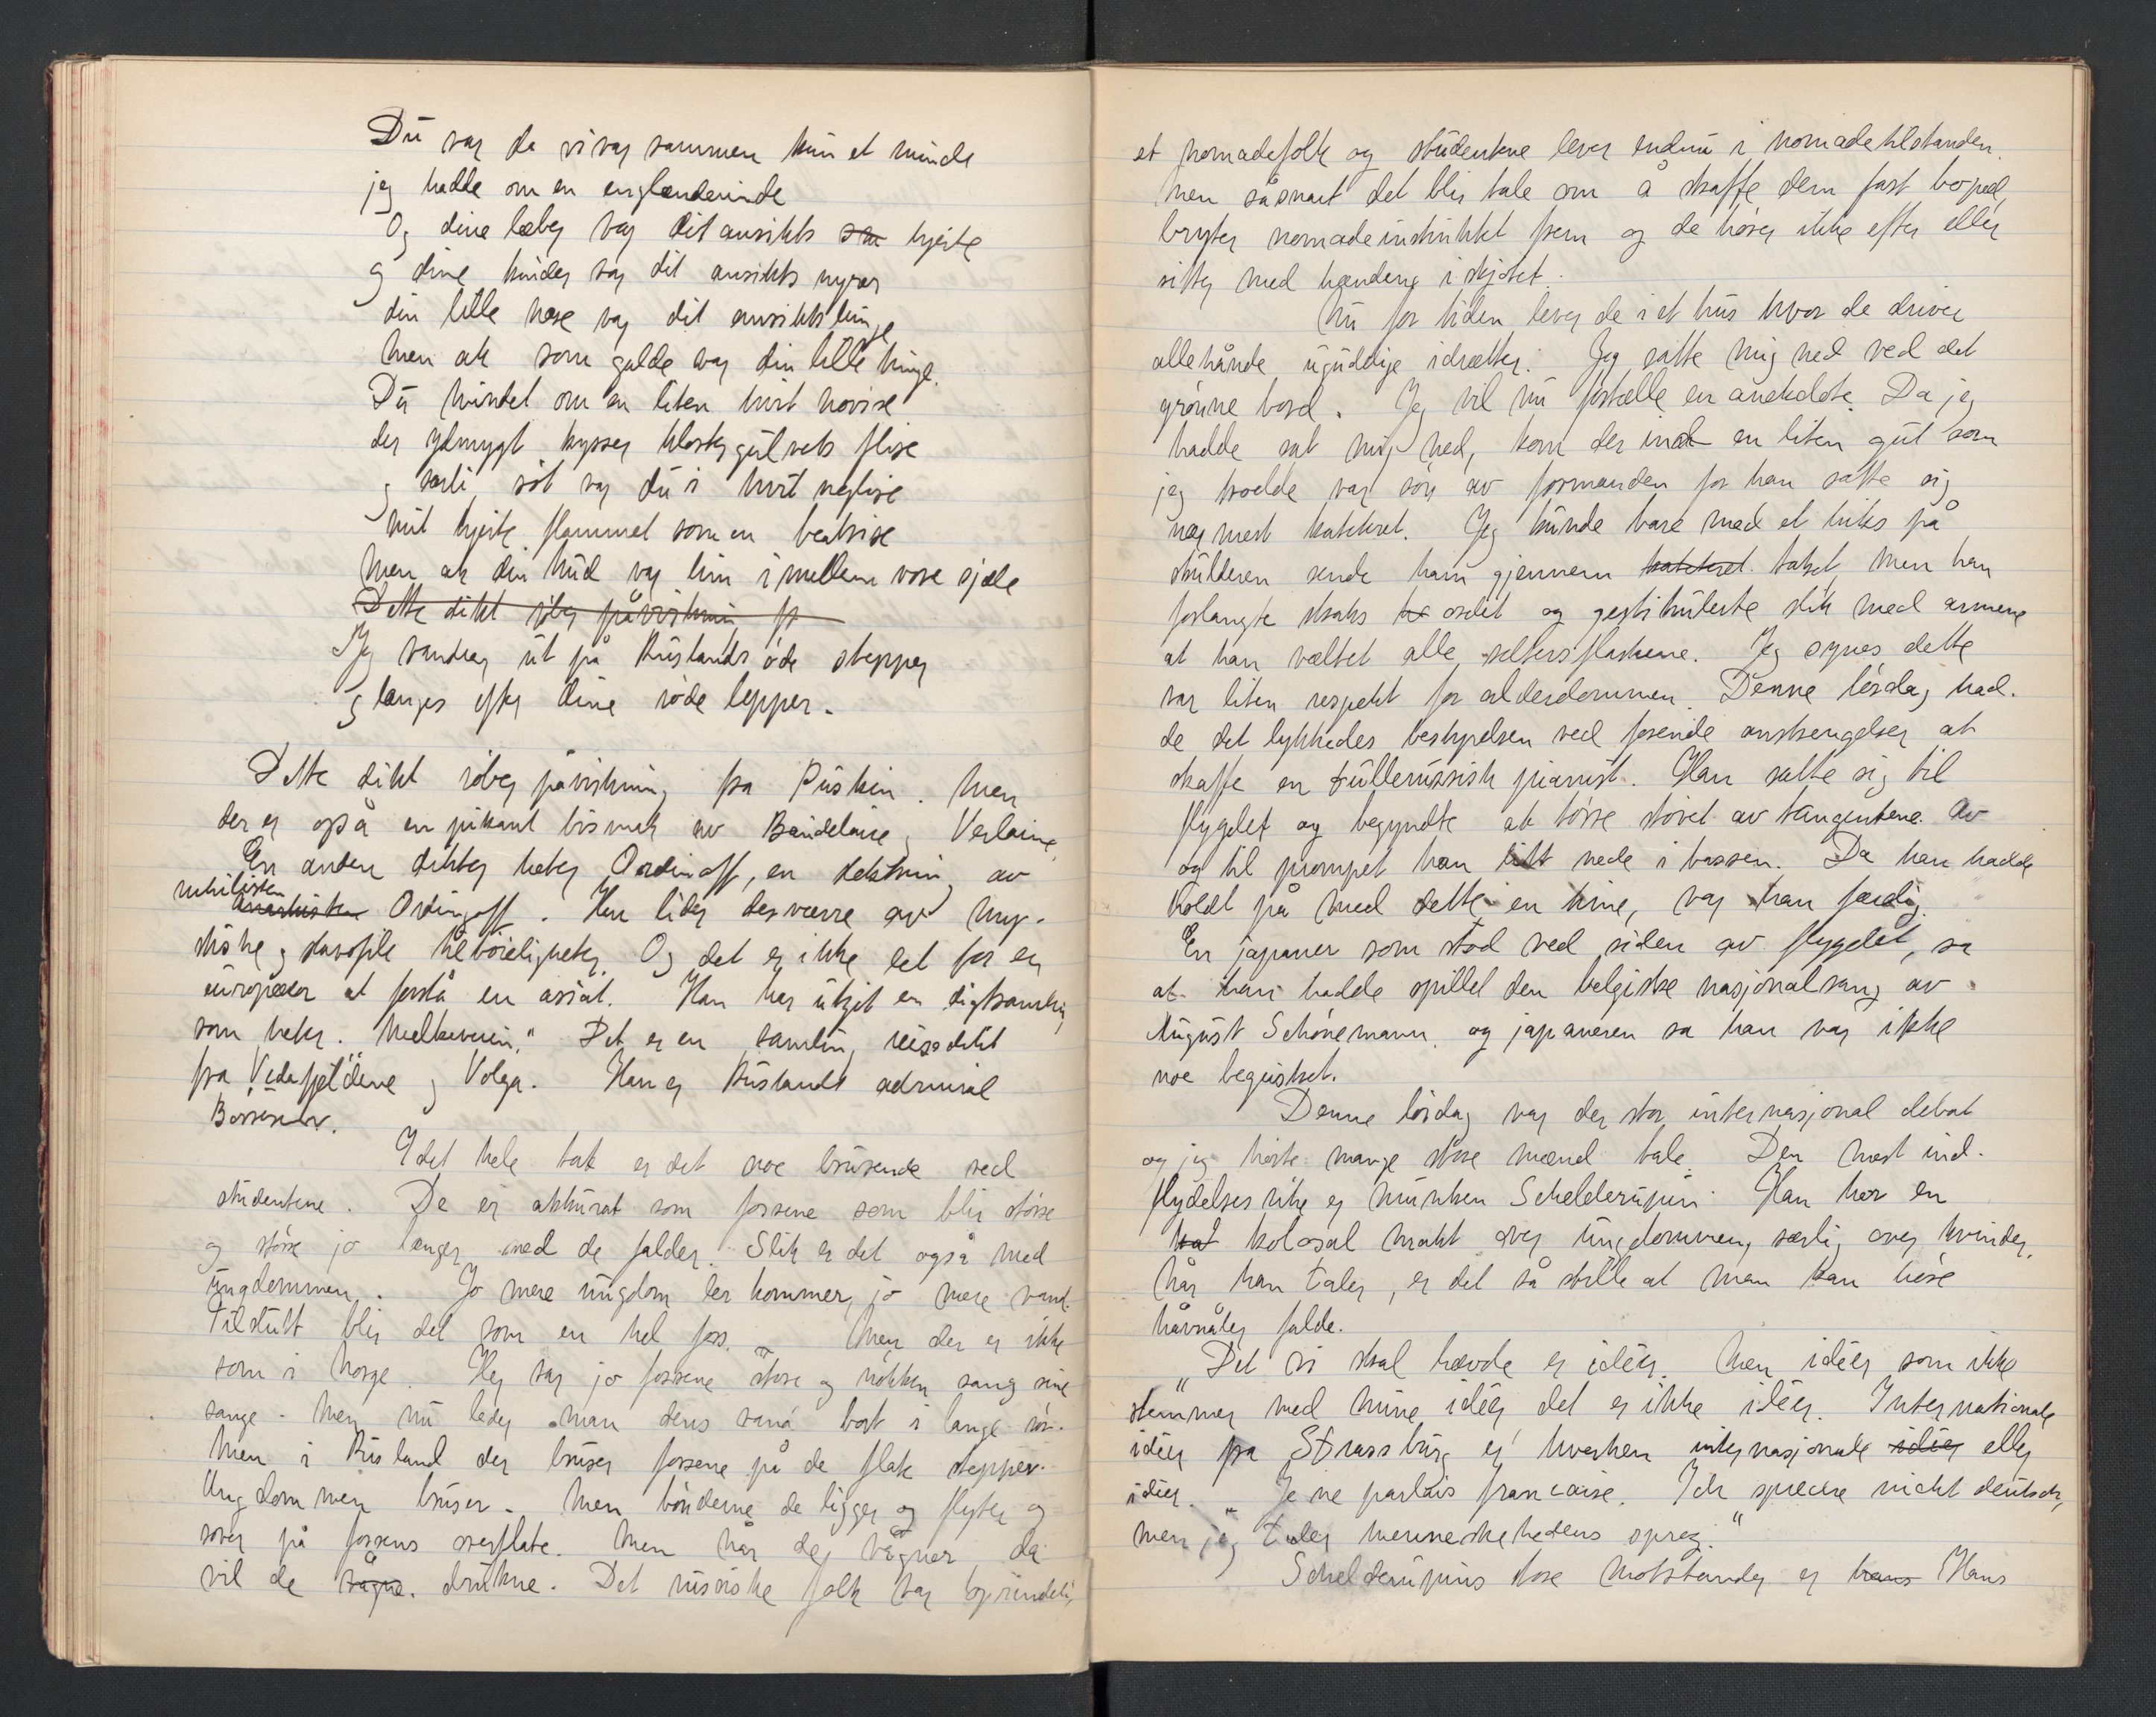 Du var da vi var sammen kun et minde
jeg hadde om en englænderinde
Og dine læber var dit ansikts hjerte
og dine kinder var dit ansikts nyrer
din lille næse var dit ansikts lunge
men ak som galde var din lille tunge.
Du mindet om en liten hvit novise
der ydmygt kysser klostergulvets flise
og særli søt var du i hvit neglise
mit hjerte flammet som en beatrise
men ak din hud var lim imellem vore sjæle
Dette dikt røber påvirkning fr
Jeg vandrer ut på Ruslands øde stepper
og længes efter dine røde lepper.
Dette dikt røber påvirkning fra Puskin. Men
der er også en pikant bismak av Baudelaire og Verlaine.
En anden dikter heter Ordinoff, en datter av
nihilisten
anarkisten Ordinoff. Hun lider desværre av mys-
tiske og slavofile tilbøieligheter. Og det er ikke let for en
europæer at forstå en asiat. Han har utgit en digtsamling
som heter "Melkeveien." Det er en samling reisedikt
fra Vidafjeldene og Volga. Han er Ruslands admiral
Børresen.
I det hele tat er det noe brusende ved
studentene. De er akkurat som fossene som blir større
og større jo længer ned de falder. Slik er det også med
ungdommen. Jo mere ungdom der kommer, jo mere vand.
Tilslutt blir det som en hel foss. Men der er ikke
som i Norge. Her var jo fossene store og nøkken sang sine
sange. Men nu leder man dens vand bort i lange rør.
Men i Rusland der bruser fossene på de flate stepper.
Ungdommen bruser. Men bønderne de ligger og flyter og
sover på fossens overflate. Men når de vågner, da
vil de vågne. drukne. Det russiske folk var oprindelig
et nomadefolk og studentene lever endnu i nomadetilstanden.
Men såsnart det blir tale om å skaffe dem fast bopæl,
bryter nomadeinstinktet frem og de hører ikke efter eller
sitter med hændene i skjøtet.
Nu for tiden lever de i et hus hvor de driver
allehånde ugudelige idrætter. Jeg satte mig ned ved det
grønne bord. Jeg vil nu fortælle en anekdote. Da jeg
hadde sat mig ned, kom der ind en liten gut som
jeg trodde var søn av formanden for han satte sig
nærmest katetret. Jeg kunde bare med et tviks på
skulderen sende ham gjennem katetret taket, men han
forlangte straks ordet og gestikulerte slik med armene
at han væltet alle seltersflaskene. Jeg synes dette
var liten respekt for alderdommen. Denne lørdag had-
de det lykkedes bestyrelsen ved forende anstrengelser at
skaffe en fullerussisk pianist. Han satte sig til
flygelet og begyndte at tørre støvet av tangentene. Av
og til prompet han litt nede i bassen. Da han hadde
holdt på med dette en time, var han færdig.
En japaner som stod ved siden av flygelet, sa
at han hadde spillet den belgiske nasjonalsang av
August Schønemann og japaneren sa han var ikke
noe begeistret.
Denne lørdag var der stor internasjonal debat
og jeg hørte mange store mænd tale. Den mest ind-
flydelsesrike er munken Schelderupin. Han har en
hat kolosal makt over ungdommen, særlig over kvinder.
Når han taler, er det så stille at man kan høre
hårnåler falde.
"Det vi skal hævde er idéer. Men idéer som ikke
stemmer med mine idéer det er ikke idéer. Internationale
idéer fra Strassburg er hverken internasjonale idéer eller
idéer. "Je ne parlais francaise. Ich spreche nicht deutsch,
men jeg taler menneskehedens sprog."
Schelderupins store motstander er hans Hans